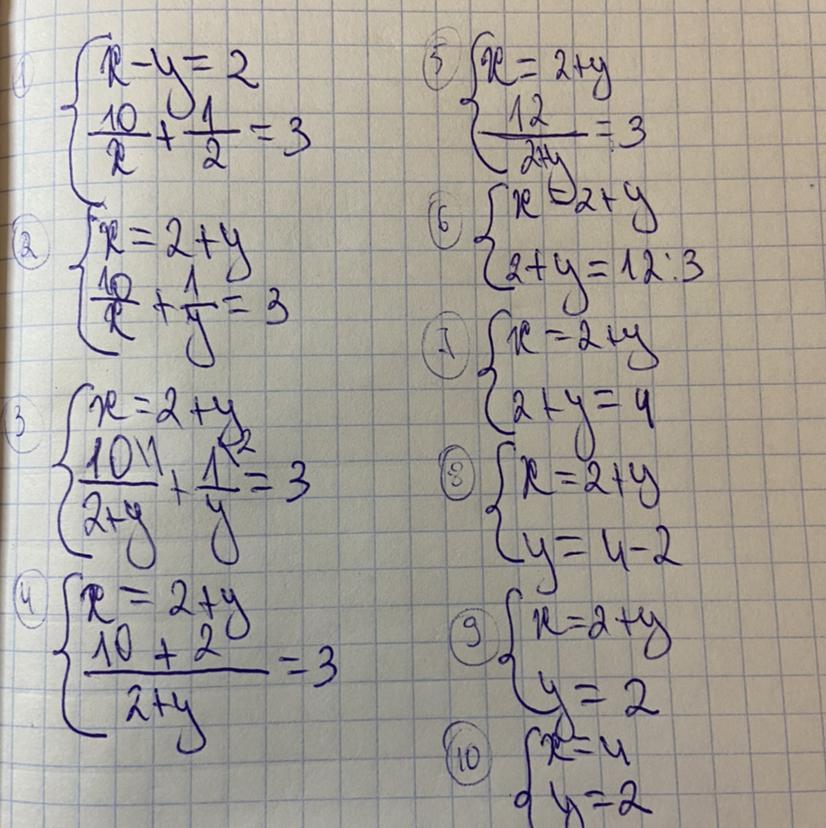 1 { x - y = 2
10/x + 1/2 = 3
2 { x = 2 + y
10/x + 1/y = 3
3 { x = 2 + y
10\1/(2+y) + 1\2/y = 3
4 { x = 2 + y
(10 + 2)/(2+y) = 3
5 { x = 2+y
12/(2+y) = 3
6 { x = 2 + y
2 + y = 12 : 3
7 { x = 2 + y
2 + y = 4
8 { x = 2 + y
y = 4 - 2
9 { x = 2 + y
y = 2
10 { x = 4
y = 2